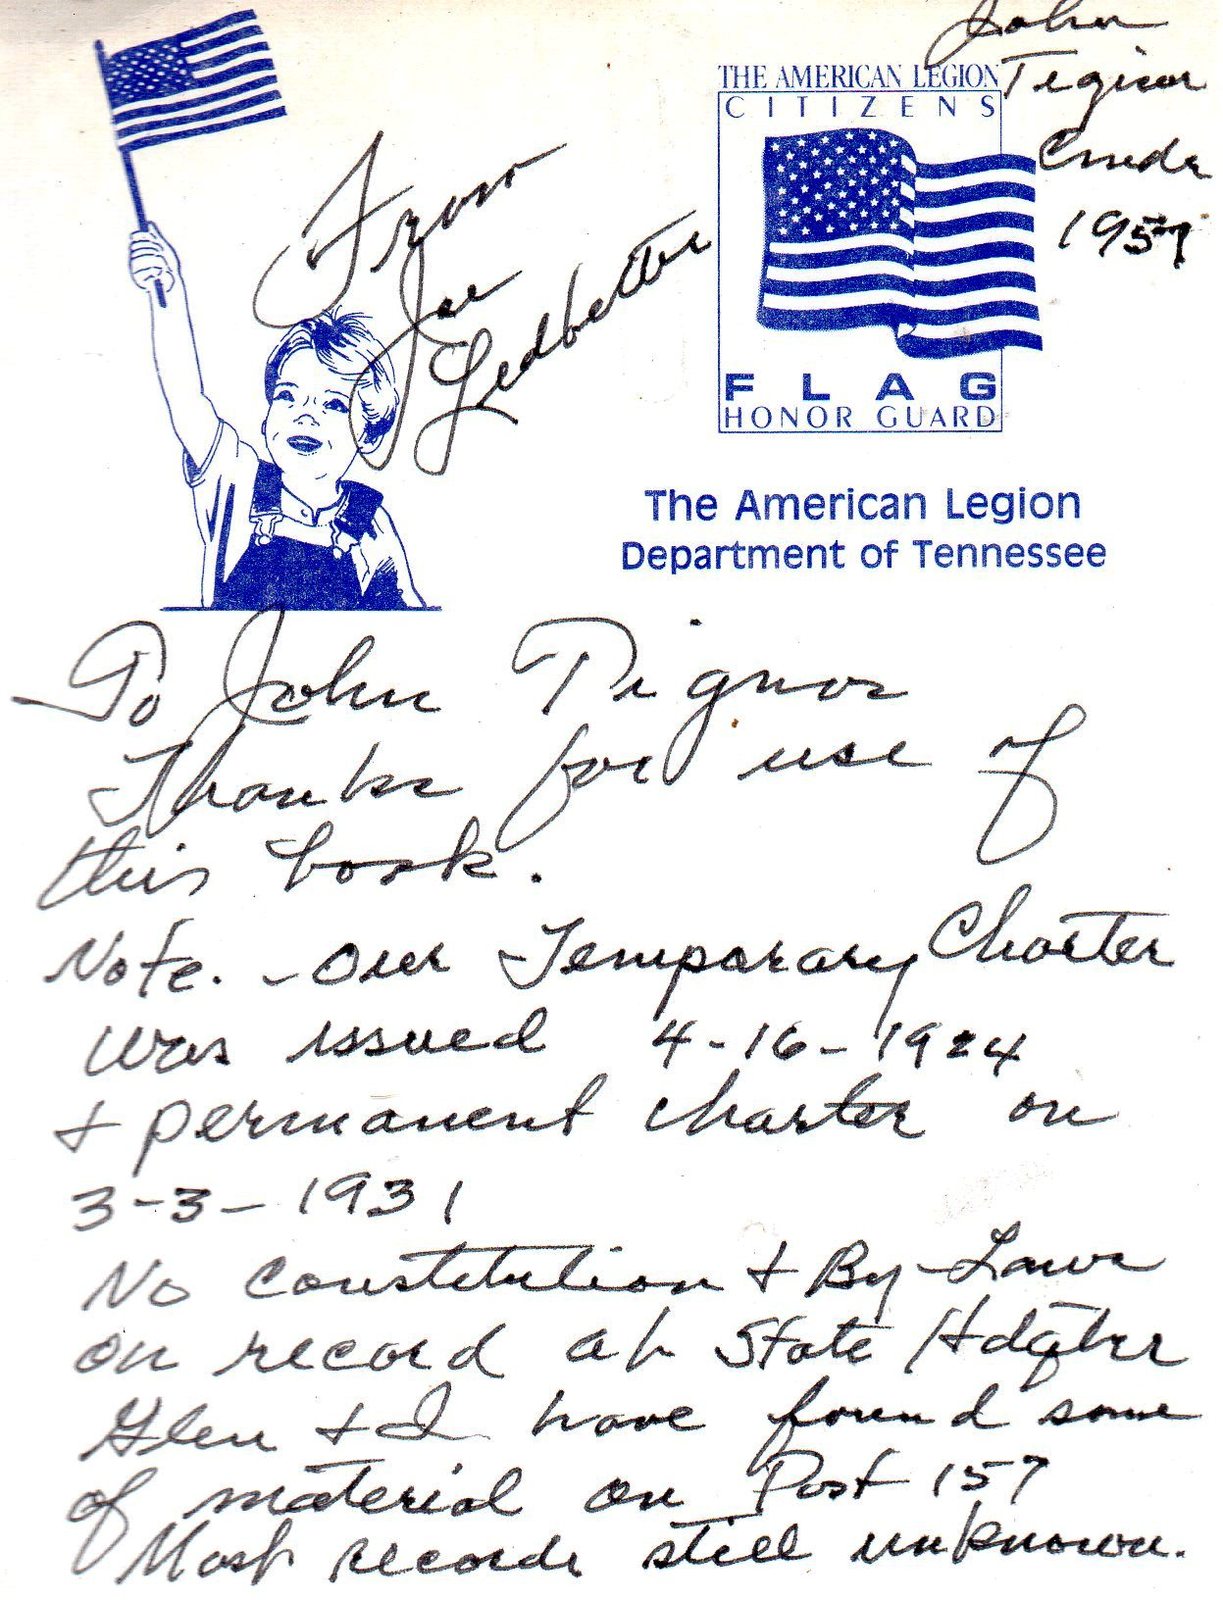 John
Tignor
1957
THE AMERICAN LEGION
CITIZENS
FLAG
HONOR GUARD
From
Joe
Ledbetter
The American Legion
Department of Tennessee
To John Tignor
Thanks for use of
this book.
Note. - Our Temporary Charter
was issued 4-16-1924
+ permanent charter on
3-3-1931
No Constitution + By-Laws
on record at State Hdqters
Glen + I have found some
of material on Post 157
Most records still unknown.